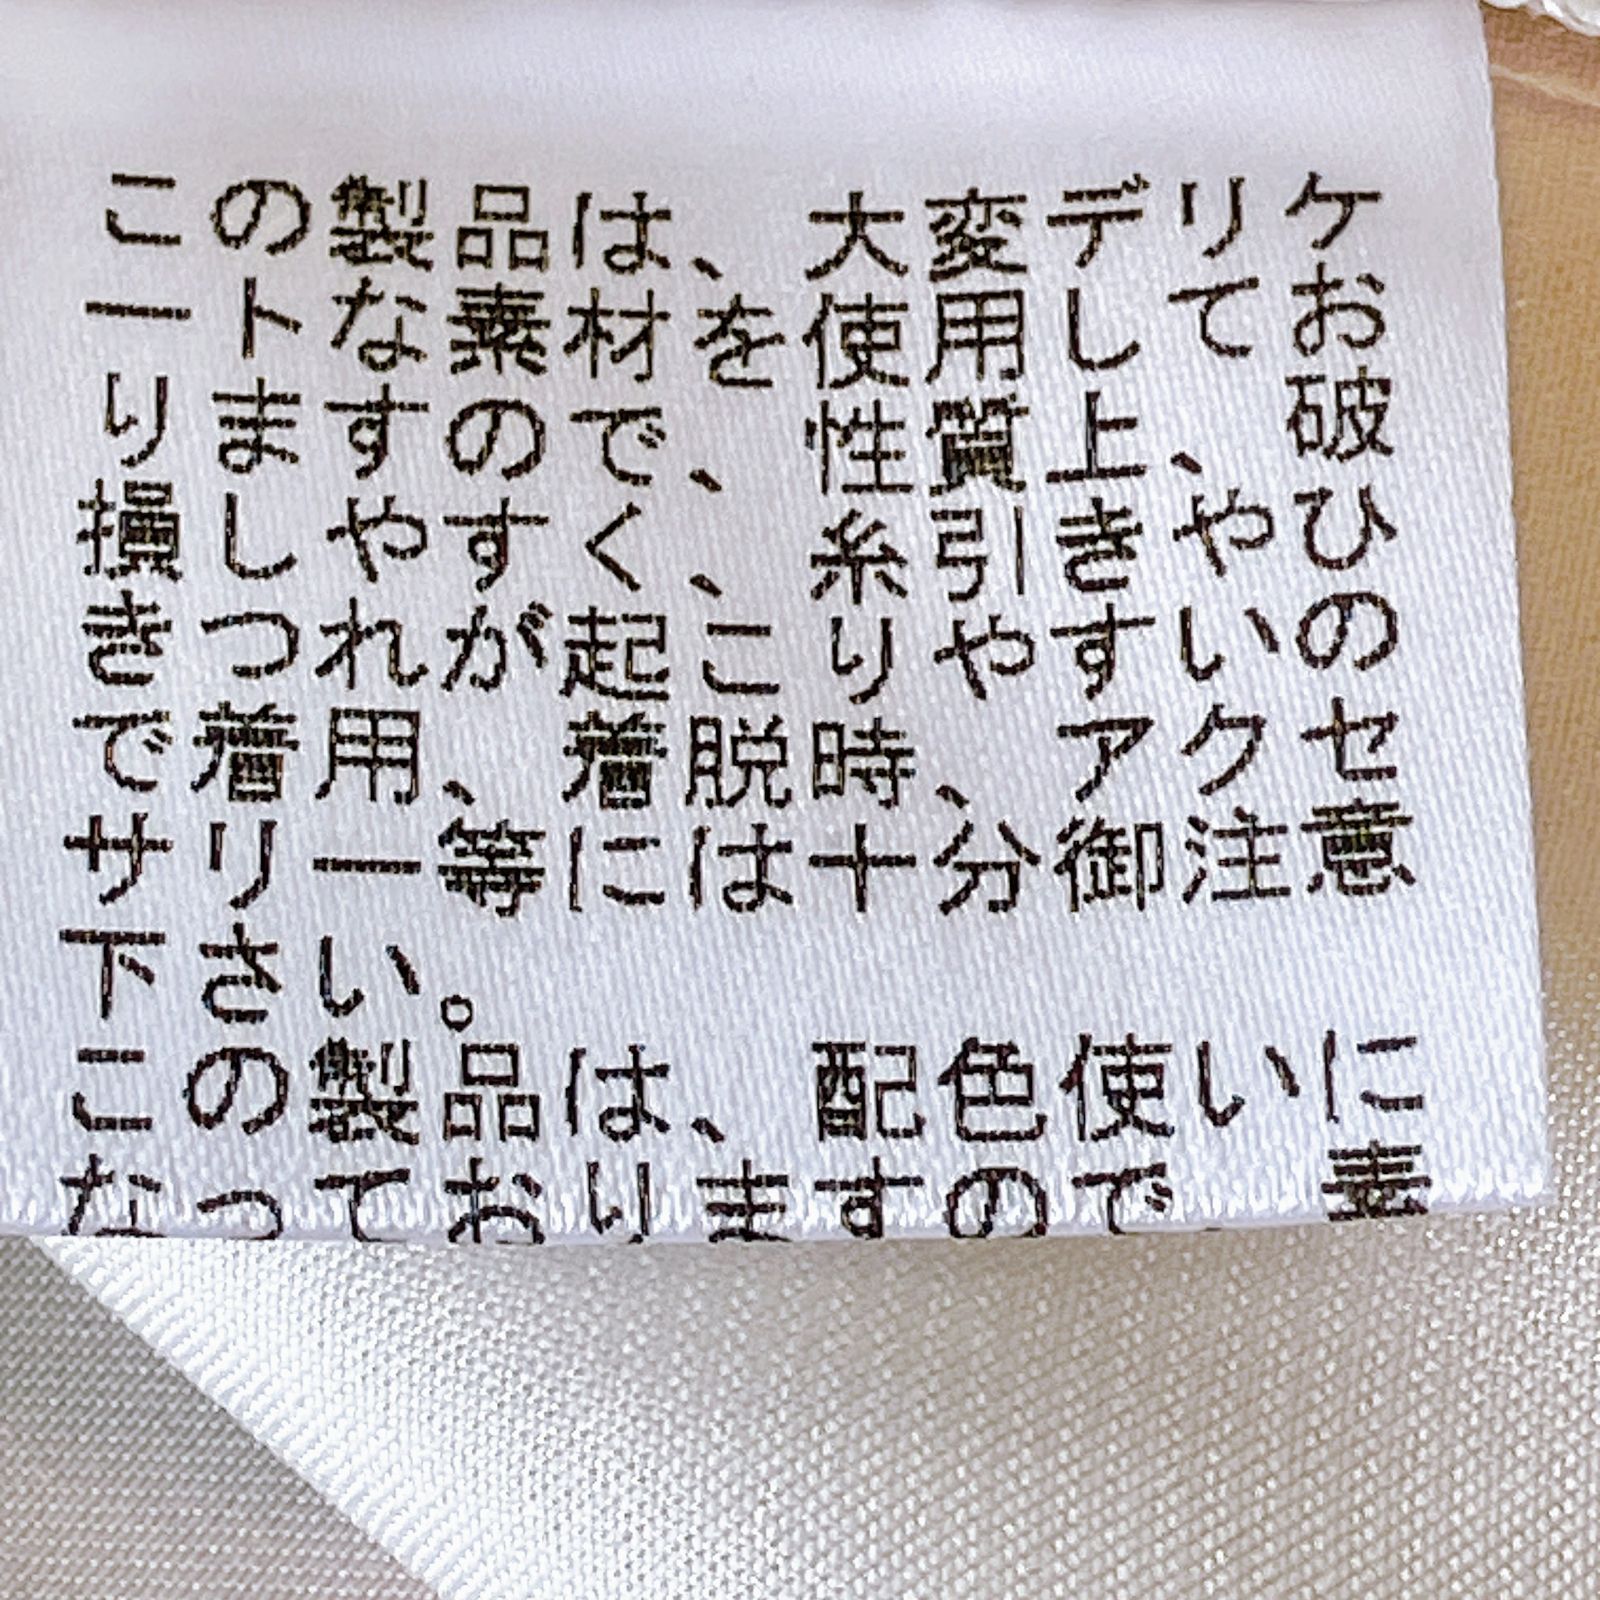 この製品は、大変デリケ
ートな素材を使用してお
りますので、性質上、破
損しやすく、糸引きやひ
きつれが起こりやすいの
で着用、着脱時、アクセ
サリー等には十分御注意
下さい。
この製品は、配色使いに
なっておりますので、素